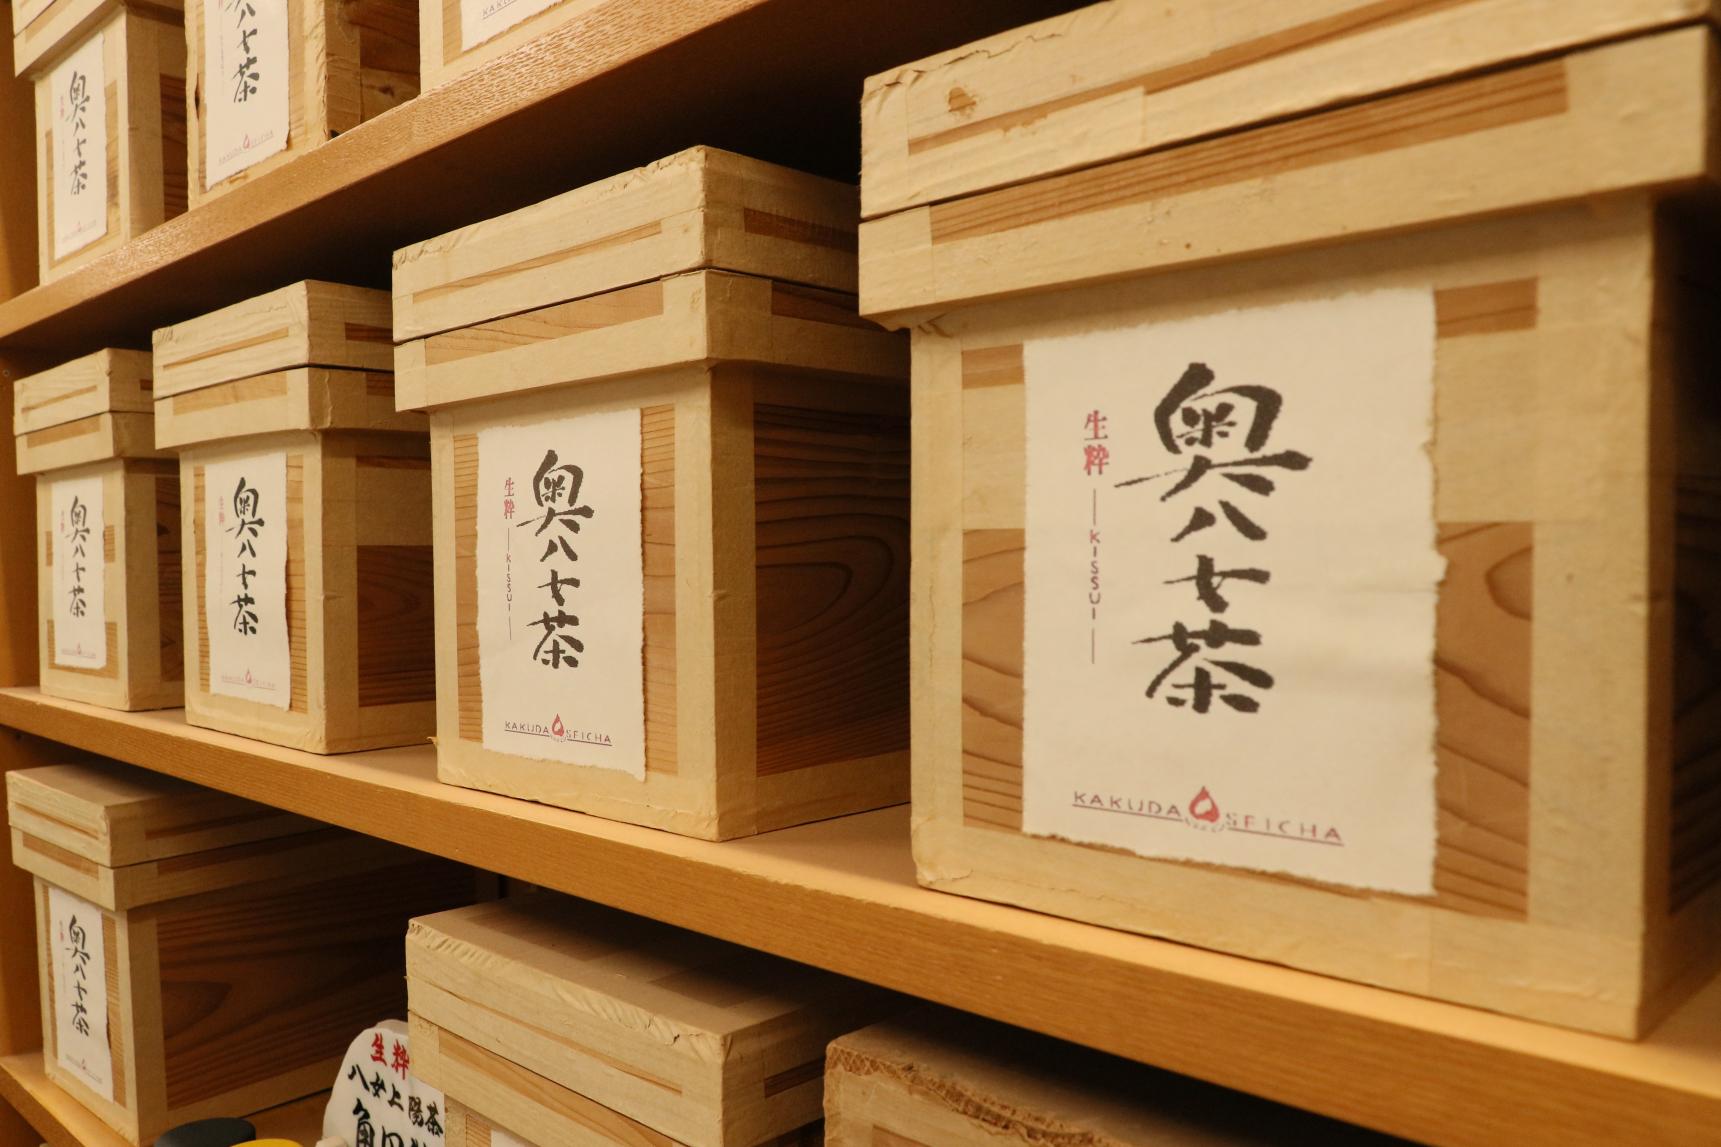 奥八女茶
生粋
KISSUI
KAKUDA SEICHA
奥八女茶
生粋
KISSUI
KAKUDA SEICHA
奥八女茶
生粋
KAKUDA SEICHA
奥八女茶
生粋
KAKUDA SEICHA
奥八女茶
生粋
八女茶
KAKUDA SEICHA
奥八女茶
生粋
生粋
八女上陽茶